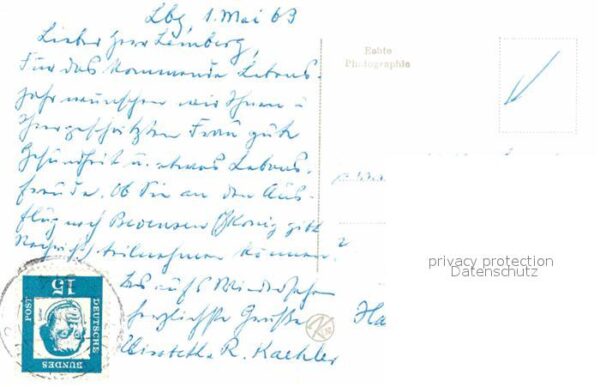 Lbg 1. Mai 63
Lieber Herr Leimberg,
Für das kommende Lebens-
jahr wünschen wir Ihnen u
Ihrer geschätzten Frau gute
Gesundheit u. etwas Lebens-
freude. Ob Sie an den Aus-
flug nach Bevensen
Nachricht teilnehmen können?
aufs Wiedersehen
herzlichste Grüße
R. Kaehler
Echte
Photographie
privacy protection
Datenschutz
15
DEUTSCHE
BUNDES
POST
Ha